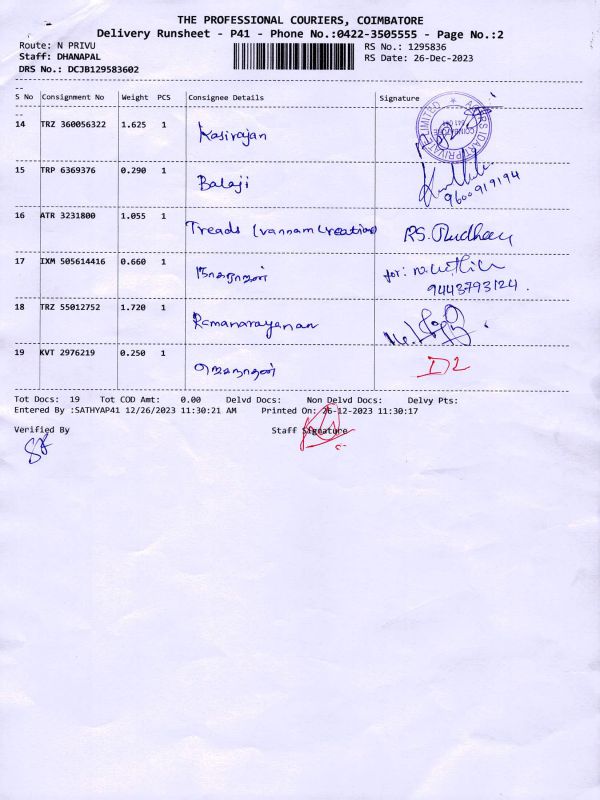 THE PROFESSIONAL COURIERS, COIMBATORE
Delivery Runsheet - P41 - Phone No.:0422-3505555 - Page No.:2
Route: N PRIVU RS No.: 1295836
Staff: DHANAPAL RS Date: 26-Dec-2023
DRS No.: DCJB129583602
S No Consignment No Weight PCS Consignee Details Signature
14 TRZ 360056322 1.625 1 Kasirajan
15 TRP 6369376 0.290 1 Balaji 9600919194
16 ATR 3231800 1.055 1 Treads (vannam Creation) RS.
17 IXM 505614416 0.660 1 for: N. 9443793124.
18 TRZ 55012752 1.720 1 Ramanarayanan
19 KVT 2976219 0.250 1 D2
Tot Docs: 19 Tot COD Amt: 0.00 Delvd Docs: Non Delvd Docs: Delvy Pts:
Entered By :SATHYAP41 12/26/2023 11:30:21 AM Printed On: 26-12-2023 11:30:17
Verified By Staff Signature